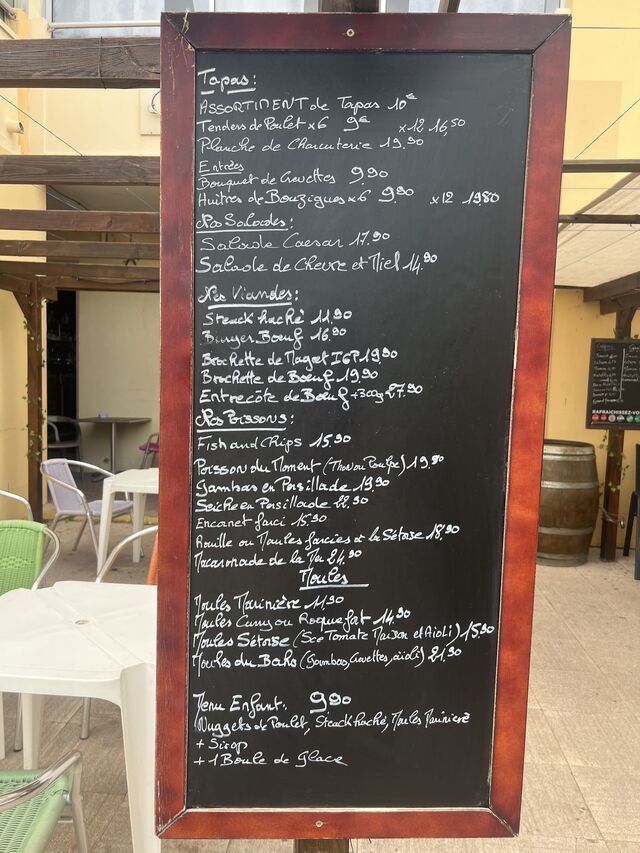 Tapas:
ASSORTIMENT de Tapas 10€
Tenders de Poulet x6 9€ x12 16,50
Planche de Charcuterie 19.90
Entrées
Bouquet de Crevettes 9.90
Huîtres de Bouzigues x6 9.90 x12 19.80
Nos Salades:
Salade Caesar 17.90
Salade de Chevre et Miel 14.90
Nos Viandes:
Steack haché 11.90
Burger Boeuf 16.90
Brochette de Magret IGP 19.90
Brochette de Boeuf 19.90
Entrecôte de Boeuf +300g 27.90
Nos Poissons:
Fish and Chips 15.90
Poisson du Moment (Thon ou Poulpe) 19.90
Gambas en Persillade 19.90
Seiche en Persillade 22.90
Encornet farci 15.90
Rouille ou Moules farcies à la Sétoise 18.90
Macaronade de la Mer 24.90
Moules
Moules Marinière 11.90
Moules Curry ou Roquefort 14.90
Moules Sétoise (Sce Tomate Maison et Aïoli) 15.90
Moules du Baks (Gambas, Crevettes, aïoli) 21.90
Menu Enfant: 9.90
Nuggets de Poulet, Steack haché, Moules Marinière
+ Sirop
+ 1 Boule de Glace
RAFRAICHISSEZ-VO